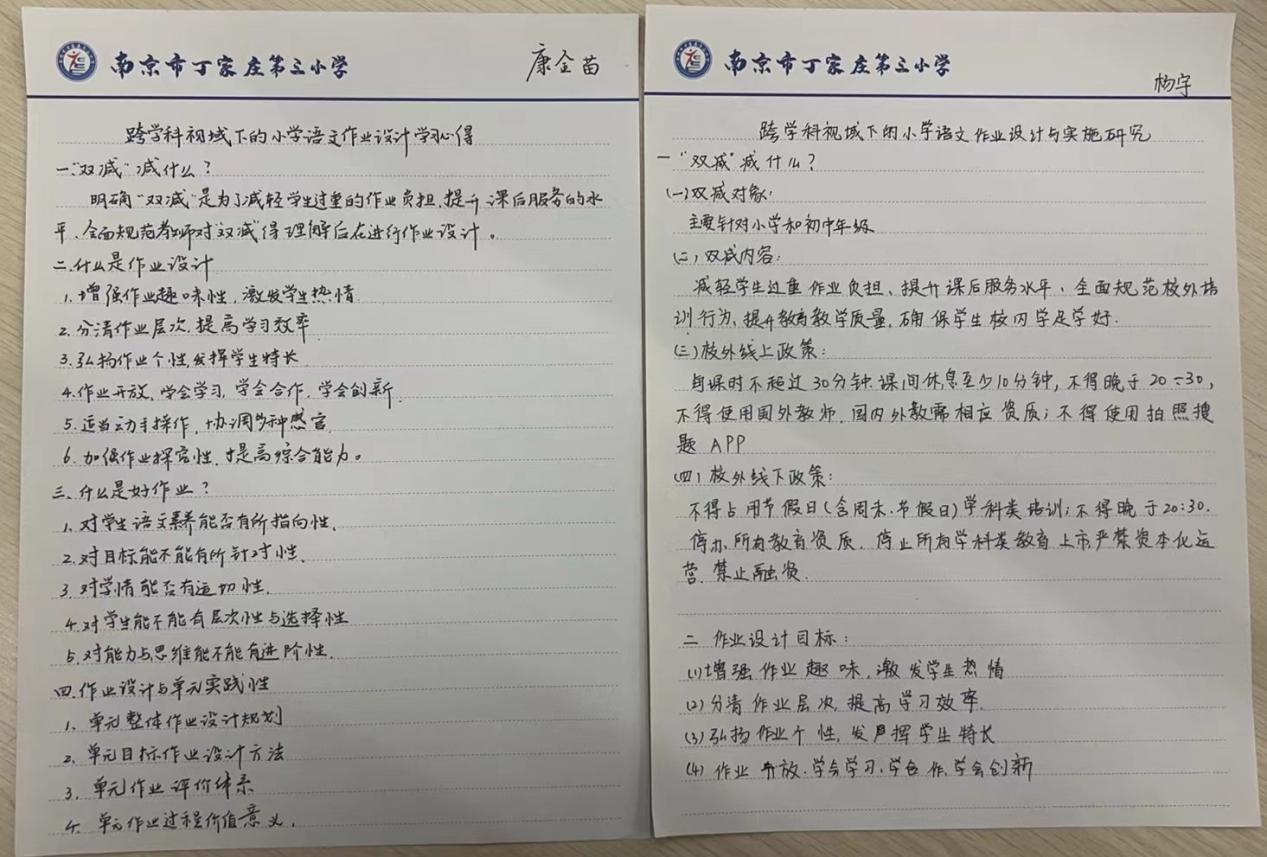 南京市丁家庄第三小学
康金苗
跨学科视域下的小学语文作业设计学习心得
一."双减"减什么？
明确"双减"是为了减轻学生过重的作业负担.提升课后服务的水
平、全面规范教师对"双减"得理解后在进行作业设计。
二.什么是作业设计
1.增强作业趣味性,激发学生热情.
2.分清作业层次.提高学习效率
3.弘扬作业个性,发挥学生特长
4.作业开放,学会学习,学会合作,学会创新.
5.适当动手操作,协调多种感官
6.加强作业探究性,提高综合能力。
三.什么是好作业？
1.对学生语文素养能否有所指向性.
2.对目标能不能有所针对性.
3.对学情能否有适切性.
4.对学生能不能有层次性与选择性
5.对能力与思维能不能有进阶性.
四.作业设计与单元实践性
1.单元整体作业设计规划
2.单元目标作业设计方法
3.单元作业评价体系
4.单元作业过程价值意义.
南京市丁家庄第三小学
杨宇
跨学科视域下的小学语文作业设计与实施研究
一"双减"减什么？
(一)双减对象:
主要针对小学和初中年级
(二)双减内容:
减轻学生过重作业负担、提升课后服务水平、全面规范校外培
训行为、提升教育教学质量,确保学生校内学足学好.
(三)校外线上政策:
每课时不超过30分钟.课间休息至少10分钟,不得晚于20:30,
不得使用国外教师,国内外教需相应资质;不得使用拍照搜
题APP
(四)校外线下政策:
不得占用节假日(含周末.节假日)学科类培训;不得晚于20:30.
停办所有教育资质.停止所有学科类教育上市,严禁资本化运
营.禁止融资.
二 作业设计目标:
(1)增强作业趣味,激发学生热情
(2)分清作业层次,提高学习效率.
(3)弘扬作业个性,发挥学生特长
(4)作业开放.学会学习.学合作,学会创新